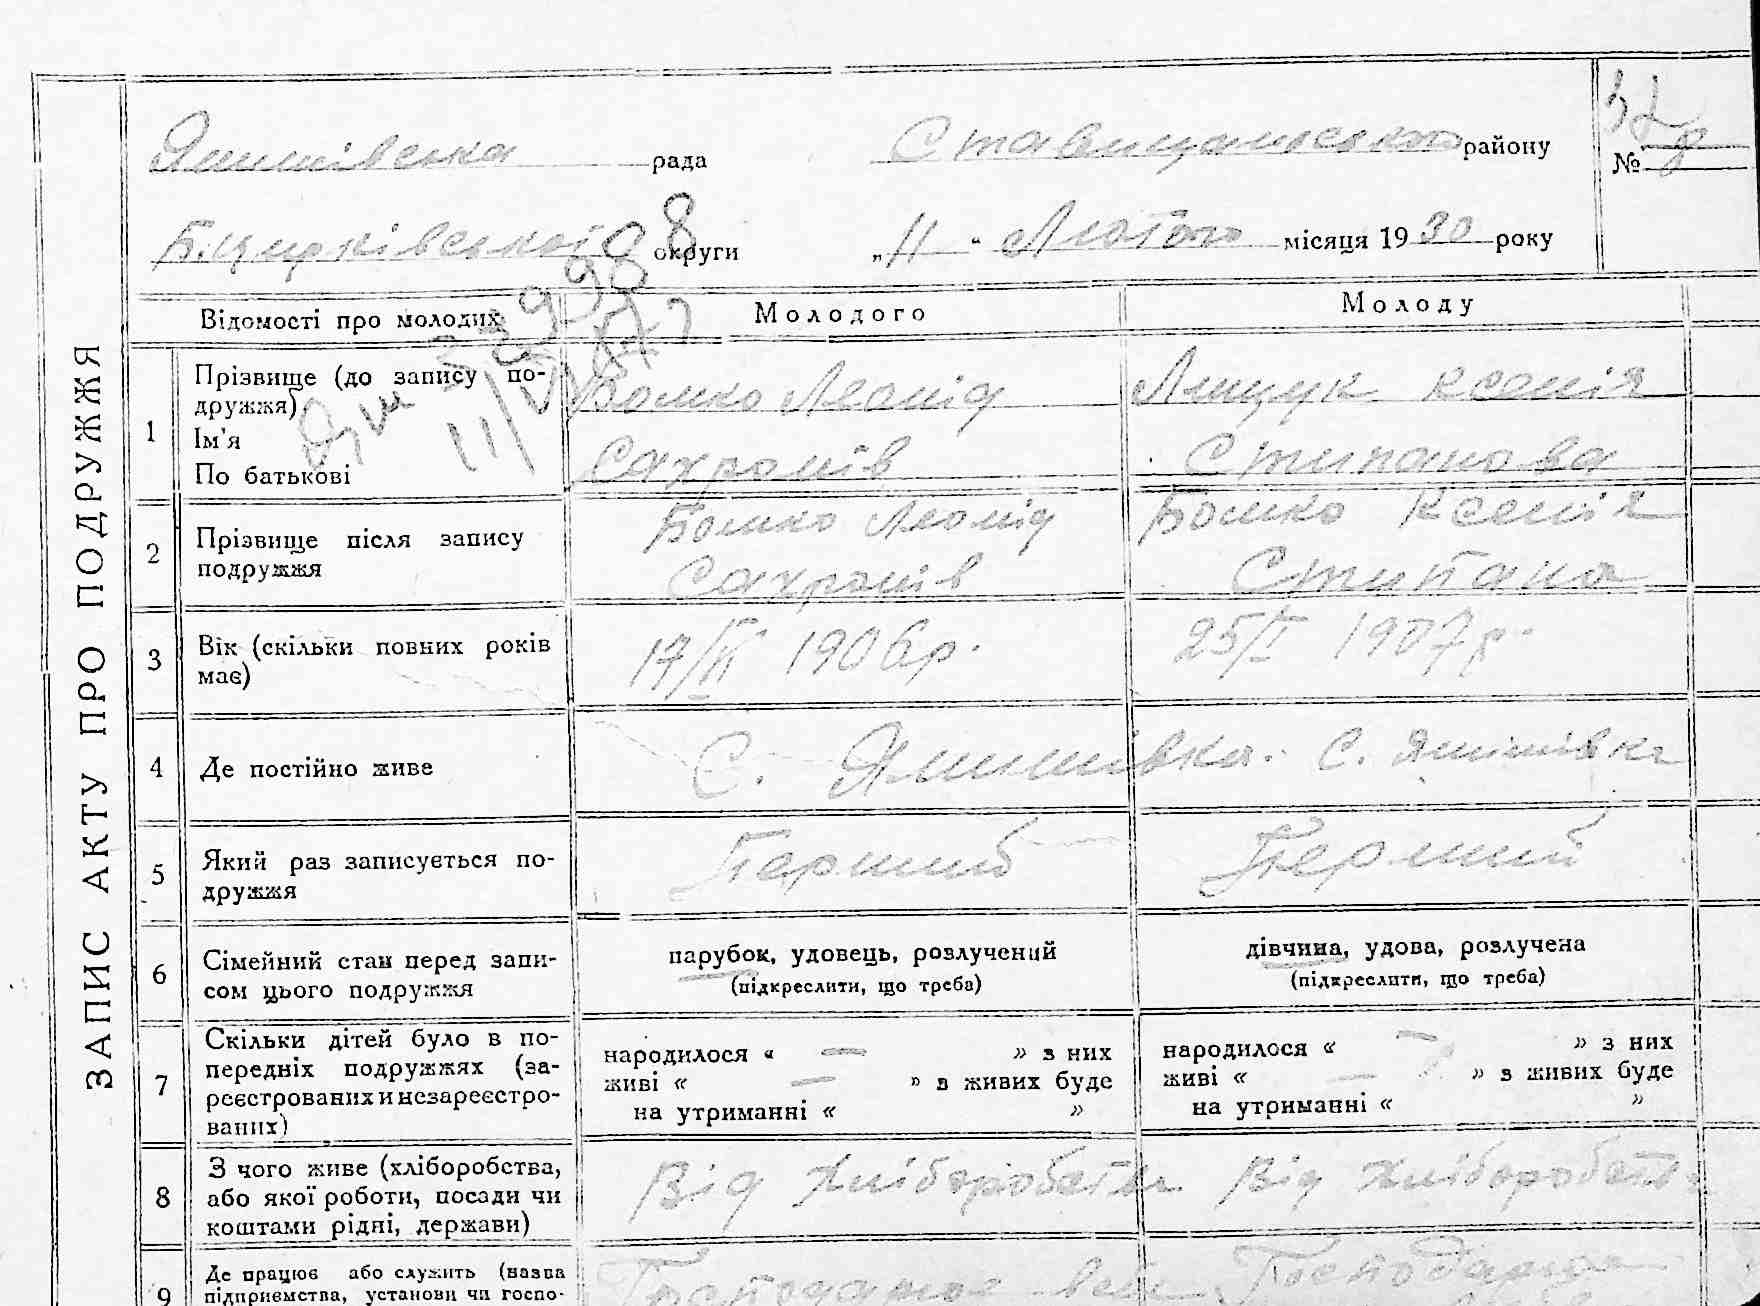 ЗАПИС АКТУ ПРО ПОДРУЖЖЯ
Яншівська рада Ставищанського району
Б.Церківської округи „11“ Лютого місяця 1930 року
№ 8
Відомості про молодих Молодого Молоду
1 Прізвище (до запису по-
дружжя)
Ім'я
По батькові
Бойко Леонід
Сахронів
Лящук Ксенія
Стипанова
2 Прізвище після запису
подружжя
Бойко Леонід
Сахронів
Бойко Ксенія
Стипана
3 Вік (скільки повних років
має)
17/VI 1906 р.
25/I 1907 р.
4 Де постійно живе
С. Янишівка. С. Янишівка
5 Який раз записується по-
дружжя
Перший
Перший
6 Сімейний стан перед запи-
сом цього подружжя
парубок, удовець, розлучений
(підкреслити, що треба)
дівчина, удова, розлучена
(підкреслити, що треба)
7 Скільки дітей було в по-
передніх подружжях (за-
реєстрованих и незареєстро-
ваних)
народилося « — » з них
живі « — » в живих буде
на утриманні « »
народилося « — » з них
живі « — » з живих буде
на утриманні « »
8 З чого живе (хліборобства,
або якої роботи, посади чи
коштами рідні, держави)
Від Хліборобства
Від Хліборобства
9 Де працює або служить (назва
підприємства, установи чи госпо-